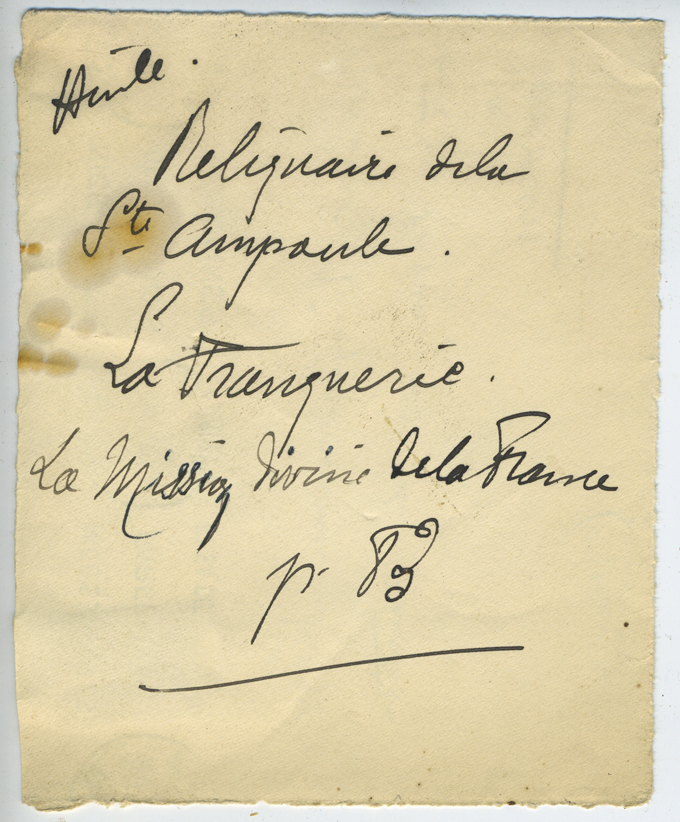 Huile.
Reliquaire de la
Ste Ampoule.
La Franquerie.
La Mission divine de la France
p.